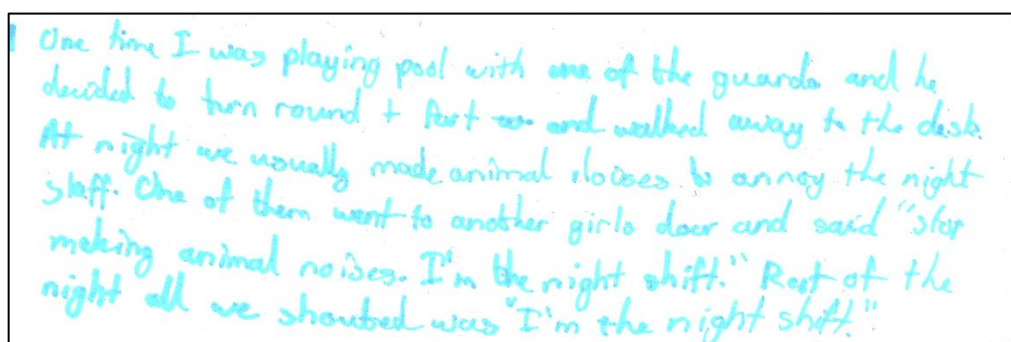 One time I was playing pool with one of the guards and he
decided to turn round + fart and walked away to the desk.
At night we usually made animal noises to annoy the night
staff. One of them went to another girls door and said "stop
making animal noises. I'm the night shift." Rest of the
night all we shouted was "I'm the night shift."